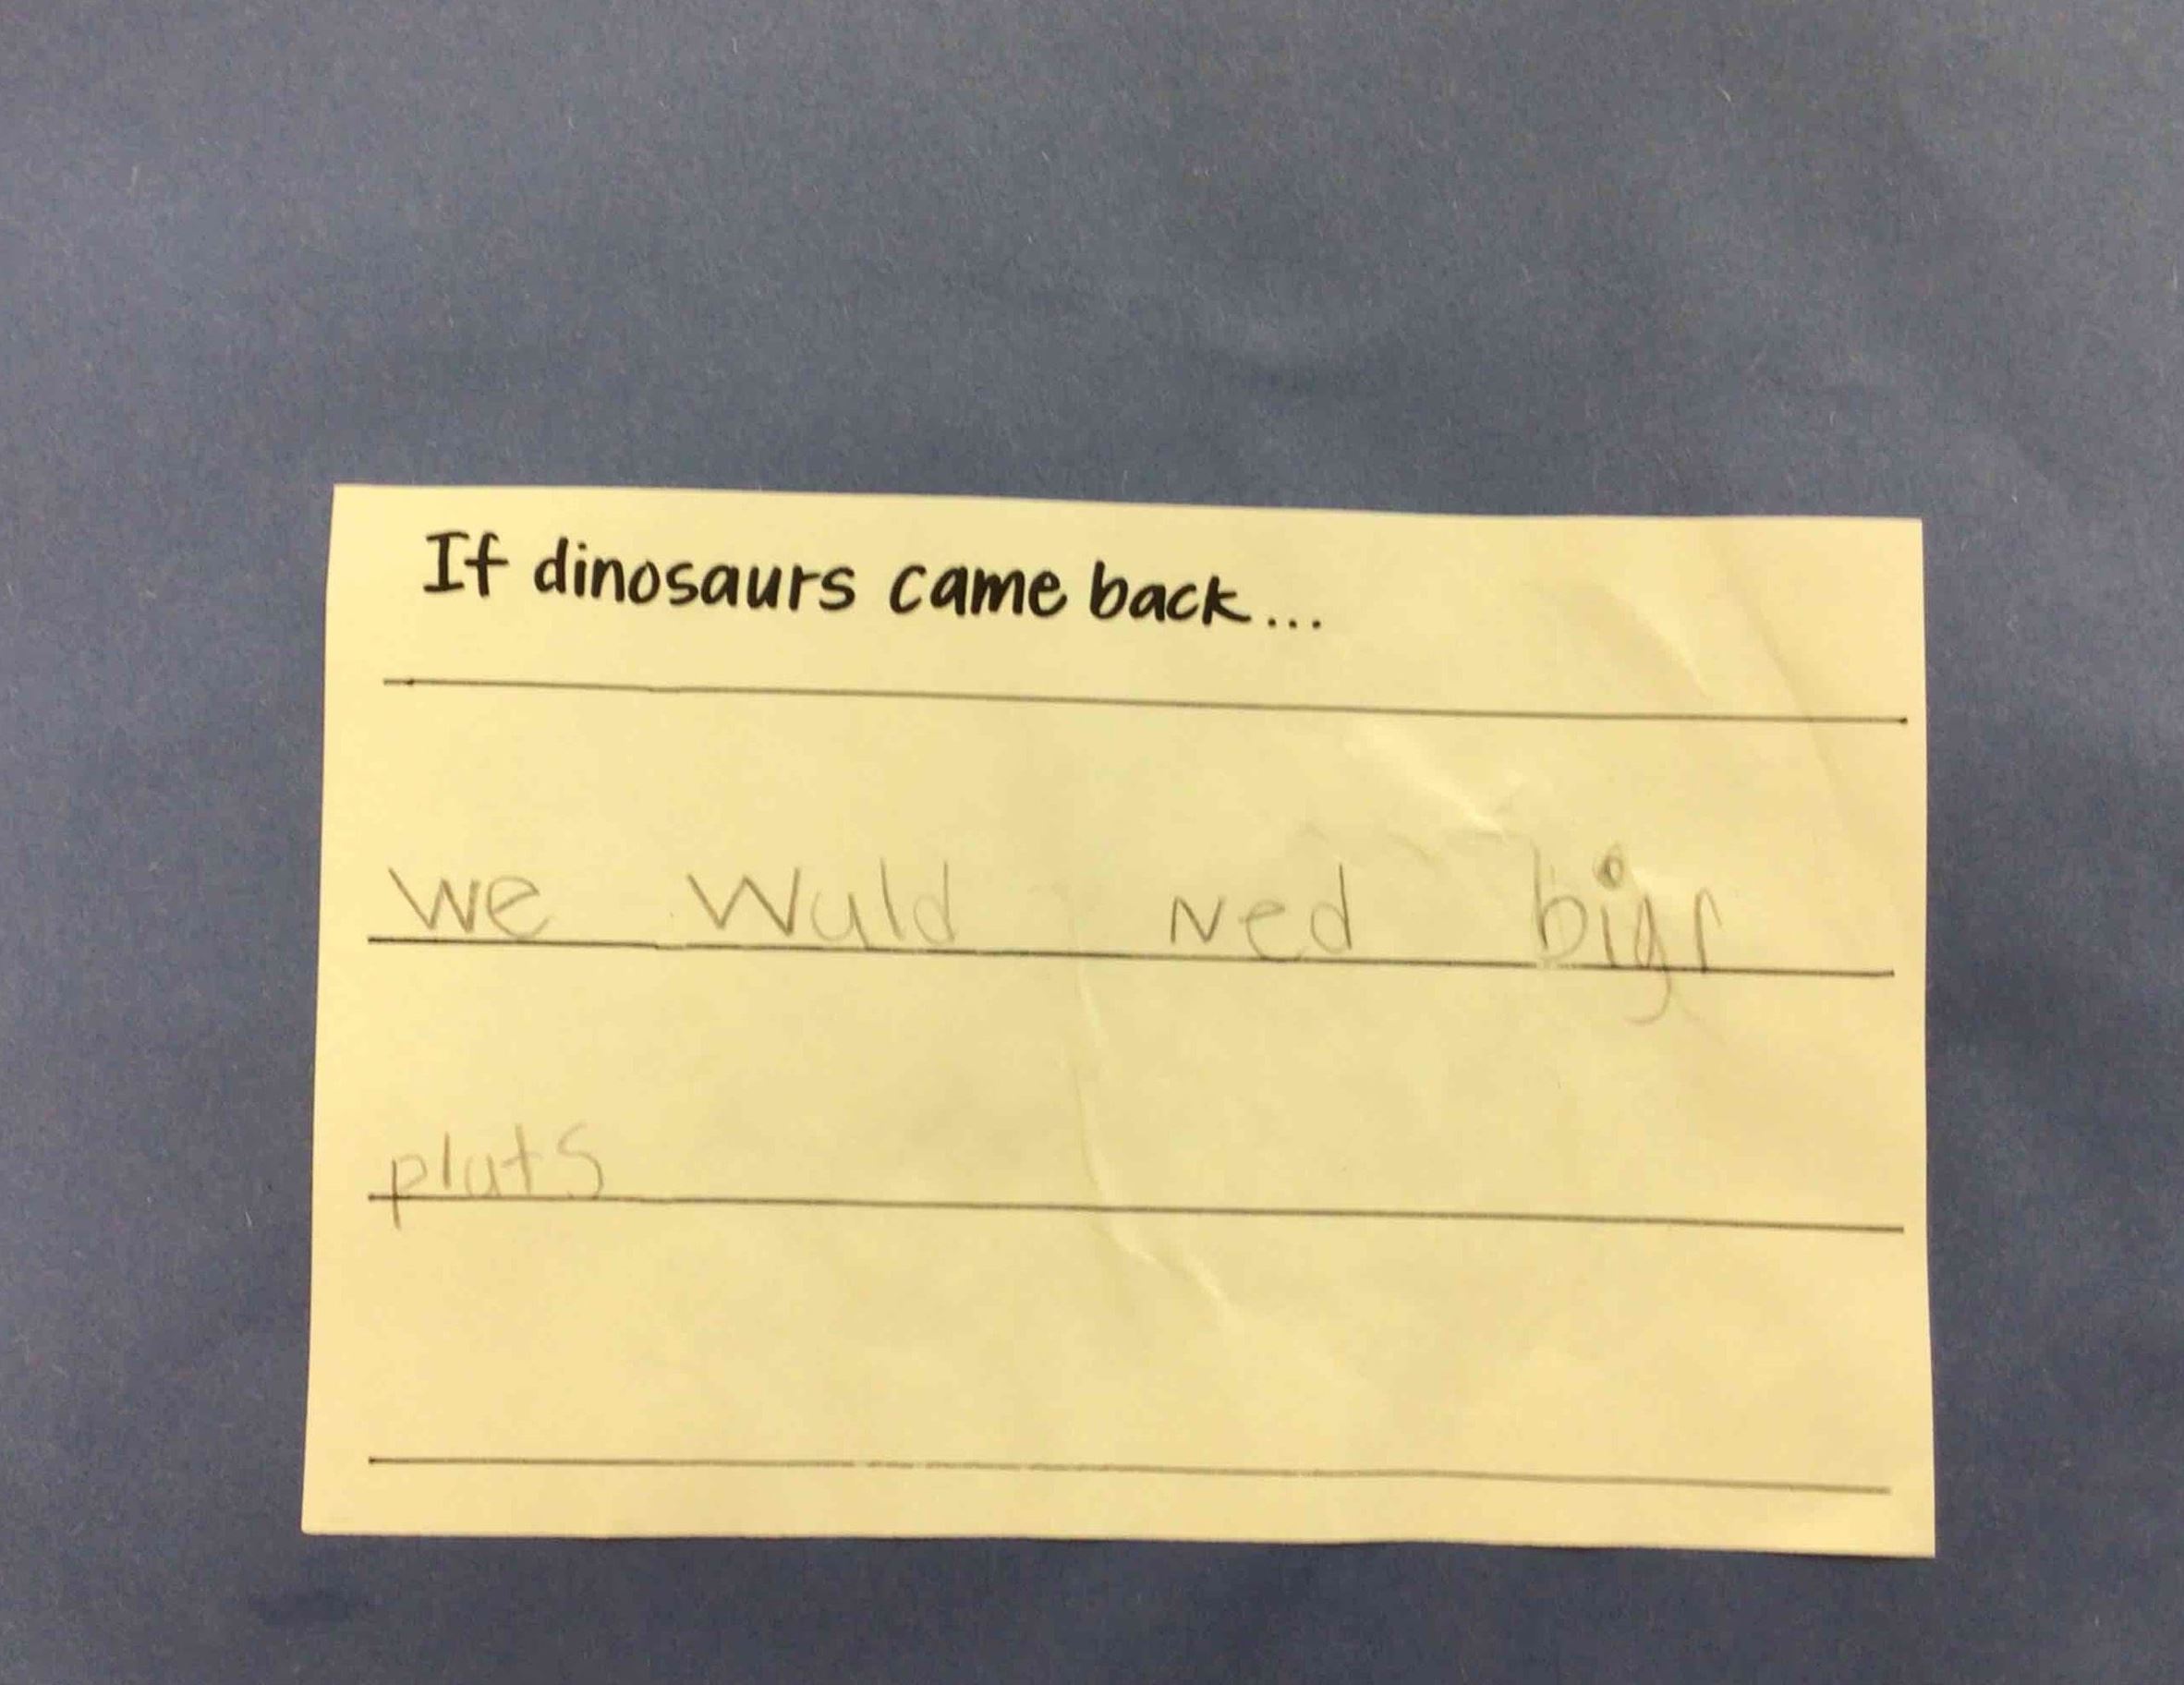 If dinosaurs came back...
we Wuld Ned bigr
pluts